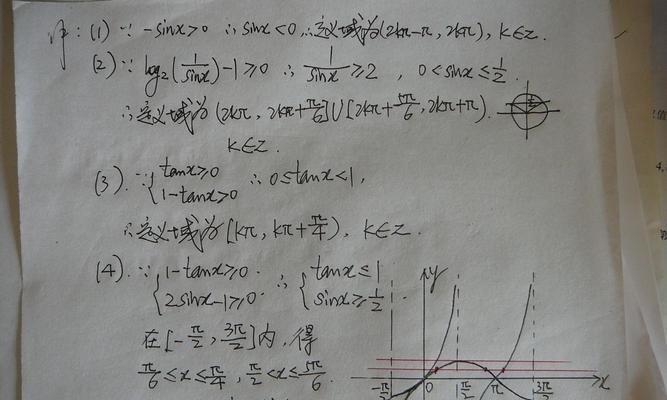 解：(1) ∵ -sinx>0 ∴ sinx<0 ∴定义域为(2kπ-π, 2kπ), k∈Z.
(2) ∵ log₂(1/sinx)-1≥0 ∴ 1/sinx≥2 , 0<sinx≤1/2.
∴定义域为(2kπ, 2kπ+π/6]∪[2kπ+5π/6, 2kπ+π).
k∈Z.
(3). ∵ { tanx≥0
1-tanx>0 ∴ 0≤tanx<1,
∴定义域为[kπ, kπ+π/4), k∈Z.
(4) ∵ { 1-tanx≥0.
2sinx-1≥0. ∴ { tanx≤1
sinx≥1/2.
在[-π/2, 3π/2]内,得
π/6≤x≤π/4, π/2<x≤5π/6.
y
-π/2 0 π/2 π 3π/2 x